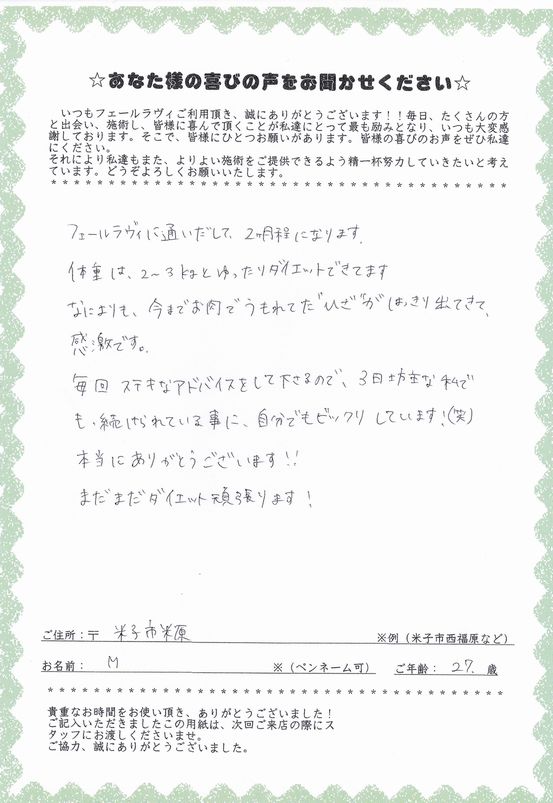 ☆あなた様の喜びの声をお聞かせください☆
いつもフェールラヴィご利用頂き、誠にありがとうございます！！毎日、たくさんの方
と出会い、施術し、皆様に喜んで頂くことが私達にとって最も励みとなり、いつも大変感
謝しております。そこで、皆様にひとつお願いがあります。皆様の喜びのお声をぜひ私達
にください。
それにより私達もまた、よりよい施術をご提供できるよう精一杯努力していきたいと考え
ています。どうぞよろしくお願いいたします。
フェールラヴィに通いだして、2ヶ月程になります。
体重は、2〜3kgとゆったりダイエットできてます
なによりも、今までお肉でうもれてた"ひざ"がはっきり出てきて、
感激です。
毎回ステキなアドバイスをして下さるので、3日坊主な私で
も続けられている事に、自分でもビックリしています!(笑)
本当にありがとうございます!!
まだまだダイエット頑張ります!
ご住所：〒 米子市米原 ※例（米子市西福原など）
お名前： M ※（ペンネーム可） ご年齢： 27. 歳
貴重なお時間をお使い頂き、ありがとうございました！
ご記入いただきましたこの用紙は、次回ご来店の際にス
タッフにお渡しくださいませ。
ご協力、誠にありがとうございました。